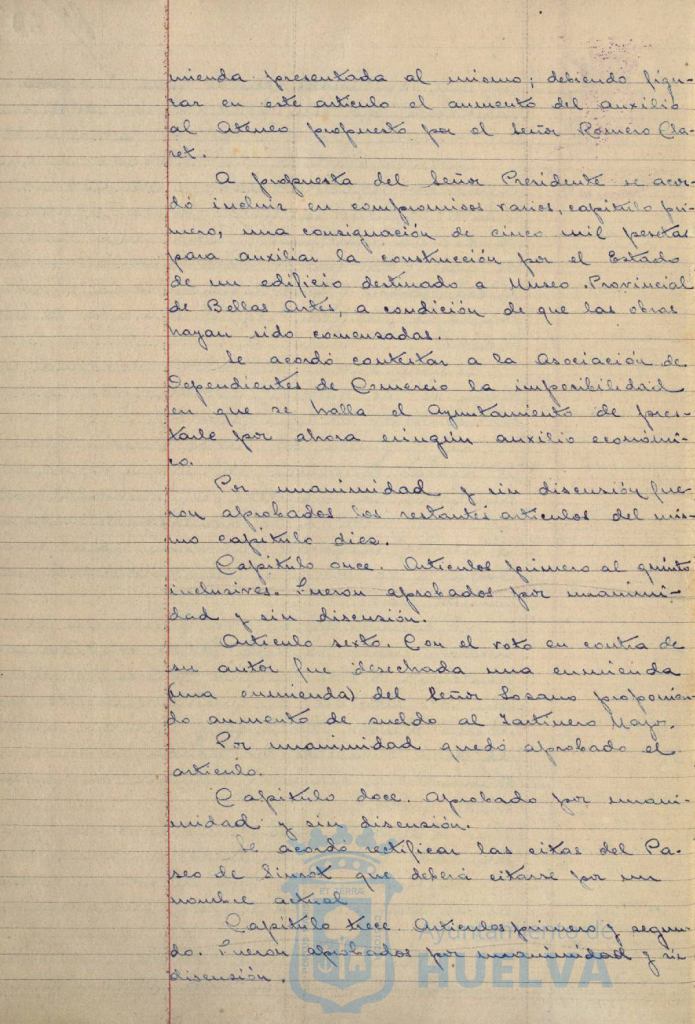 mienda presentada al mismo; debiendo figu-
rar en este artículo el aumento del auxilio
al Ateneo propuesto por el Señor Romero Cla-
ret.
A propuesta del Señor Presidente se acor-
dó incluir en compromisos varios, capítulo pri-
mero, una consignación de cinco mil pesetas
para auxiliar la construcción por el Estado
de un edificio destinado a Museo Provincial
de Bellas Artes, a condición de que las obras
hayan sido comenzadas.
Se acordó contestar a la Asociación de
Dependientes de Comercio la imposibilidad
en que se halla el Ayuntamiento de pres-
tarle por ahora ningún auxilio económi-
co.
Por unanimidad y sin discusión fue-
ron aprobados los restantes artículos del mis-
mo capítulo diez.
Capítulo once. Artículos primero al quinto
inclusives. Fueron aprobados por unanimi-
dad y sin discusión.
Artículo sexto. Con el voto en contra de
su autor fue desechada una enmienda
(una enmienda) del Señor Lozano proponien-
do aumento de sueldo al Jardinero Mayor.
Por unanimidad quedó aprobado el
artículo.
Capítulo doce. Aprobado por unani-
midad y sin discusión.
Se acordó rectificar las citas del Pa-
seo de que deberá citarse por su
nombre actual
Capítulo trece. Artículos primero y segun-
do. Fueron aprobados por unanimidad y sin
discusión.
Ayuntamiento de
HUELVA